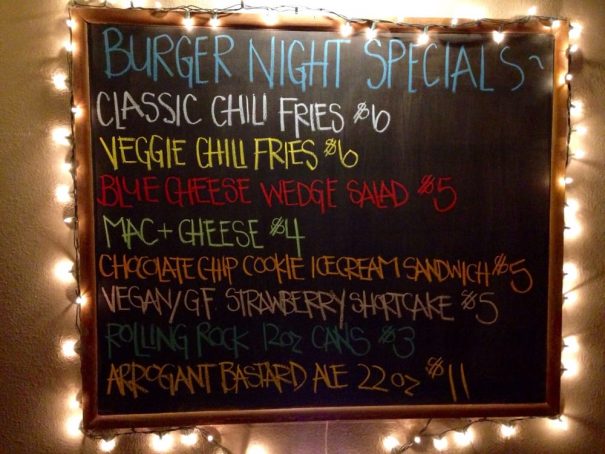 BURGER NIGHT SPECIALS~
CLASSIC CHILI FRIES $6
VEGGIE CHILI FRIES $6
BLUE CHEESE WEDGE SALAD $5
MAC + CHEESE $4
CHOCOLATE CHIP COOKIE ICECREAM SANDWICH $5
VEGAN/GF STRAWBERRY SHORTCAKE $5
ROLLING ROCK 12oz CANS $3
ARROGIANT BASTARD ALE 22oz $11